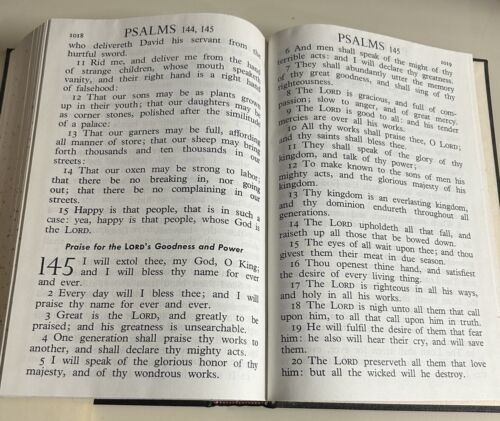 1018
PSALMS 144, 145
who delivereth David his servant from the
hurtful sword.
11 Rid me, and deliver me from the hand
of strange children, whose mouth speaketh
vanity, and their right hand is a right hand
of falsehood:
12 That our sons may be as plants grown
up in their youth; that our daughters may be
as corner stones, polished after the similitude
of a palace:
13 That our garners may be full, affording
all manner of store; that our sheep may bring
forth thousands and ten thousands in our
streets:
14 That our oxen may be strong to labor;
that there be no breaking in, nor going
out; that there be no complaining in our
streets.
15 Happy is that people, that is in such a
case: yea, happy is that people, whose God is
the LORD.
Praise for the LORD's Goodness and Power
145 I will extol thee, my God, O King;
and I will bless thy name for ever
and ever.
2 Every day will I bless thee; and I will
praise thy name for ever and ever.
3 Great is the LORD, and greatly to be
praised; and his greatness is unsearchable.
4 One generation shall praise thy works to
another, and shall declare thy mighty acts.
5 I will speak of the glorious honor of thy
majesty, and of thy wondrous works.
PSALMS 145
1019
6 And men shall speak of the might of thy
terrible acts: and I will declare thy greatness.
7 They shall abundantly utter the memory
of thy great goodness, and shall sing of thy
righteousness.
8 The LORD is gracious, and full of com-
passion; slow to anger, and of great mercy.
9 The LORD is good to all: and his tender
mercies are over all his works.
10 All thy works shall praise thee, O LORD;
and thy saints shall bless thee.
11 They shall speak of the glory of thy
kingdom, and talk of thy power;
12 To make known to the sons of men his
mighty acts, and the glorious majesty of his
kingdom.
13 Thy kingdom is an everlasting kingdom,
and thy dominion endureth throughout all
generations.
14 The LORD upholdeth all that fall, and
raiseth up all those that be bowed down.
15 The eyes of all wait upon thee; and thou
givest them their meat in due season.
16 Thou openest thine hand, and satisfiest
the desire of every living thing.
17 The LORD is righteous in all his ways,
and holy in all his works.
18 The LORD is nigh unto all them that call
upon him, to all that call upon him in truth.
19 He will fulfil the desire of them that fear
him: he also will hear their cry, and will save
them.
20 The LORD preserveth all them that love
him: but all the wicked will he destroy.